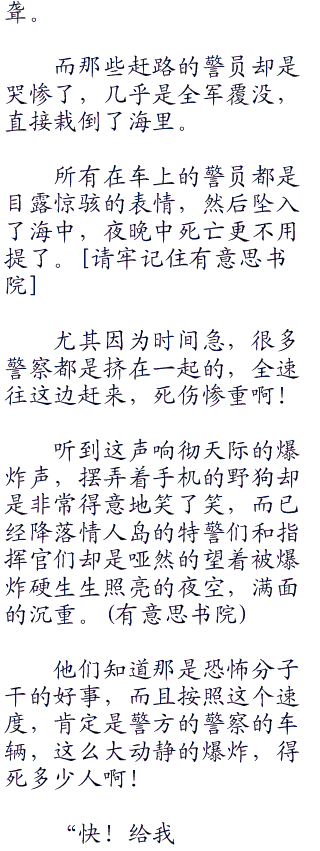 聋。
而那些赶路的警员却是
哭惨了，几乎是全军覆没，
直接栽倒了海里。
所有在车上的警员都是
目露惊骇的表情，然后坠入
了海中，夜晚中死亡更不用
提了。[请牢记住有意思书
院]
尤其因为时间急，很多
警察都是挤在一起的，全速
往这边赶来，死伤惨重啊！
听到这声响彻天际的爆
炸声，摆弄着手机的野狗却
是非常得意地笑了笑，而已
经降落情人岛的特警们和指
挥官们却是哑然的望着被爆
炸硬生生照亮的夜空，满面
的沉重。(有意思书院)
他们知道那是恐怖分子
干的好事，而且按照这个速
度，肯定是警方的警察的车
辆，这么大动静的爆炸，得
死多少人啊！
“快！给我